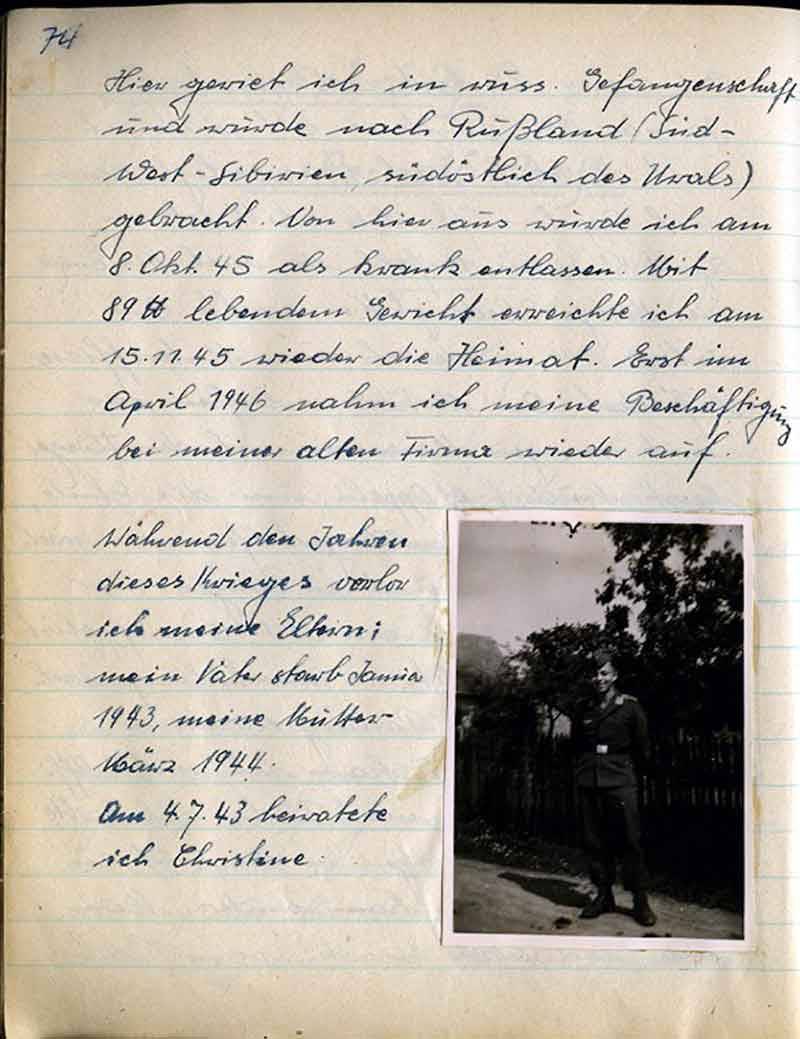 74
Hier geriet ich in russ. Gefangenschaft
und wurde nach Rußland (Süd-
West-Sibirien, südöstlich des Urals)
gebracht. Von hier aus wurde ich am
8. Okt. 45 als krank entlassen. Mit
89 ℔ lebendem Gewicht erreichte ich am
15.11.45 wieder die Heimat. Erst im
April 1946 nahm ich meine Beschäftigung
bei meiner alten Firma wieder auf.
Während den Jahren
dieses Krieges verlor
ich meine Eltern;
mein Vater starb Januar
1943, meine Mutter
März 1944.
Am 4.7.43 heiratete
ich Christine.